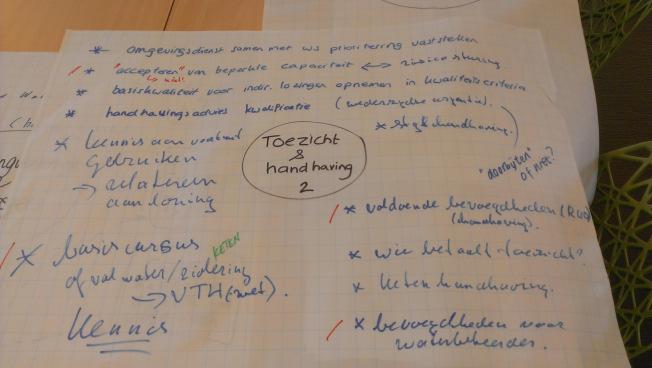 * omgevingsdienst samen met ws prioritering vaststellen
* "accepteren" van beperkte capaciteit ↔ risico sturing
↳ niet!
* basiskwaliteit voor indir. lozingen opnemen in kwaliteitscriteria
* handhavingsadvies kwalificatie (wederzijdse urgentie).
* strafhandhaving.
"doorbijten" of niet?
* kennis aan voorkant
gebruiken
→ relateren
aan lozing
Toezicht
&
handhaving
2
* voldoende bevoegdheden (RUD)
(handhaving).
* basiscursus
KETEN
afvalwater/riolering
→ VTH
Kennis
* wie betaalt toezicht?
* ketenhandhaving.
* bevoegdheden voor
waterbeheerder.